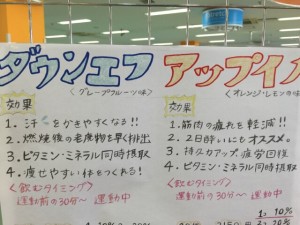 ダウンエフ
<グレープフルーツ味>
効果
1. 汗をかきやすくなる!!
2. 燃焼後の老廃物を早く排出
3. ビタミン・ミネラル同時摂取
4. 痩せやすい体をつくれる!
<飲むタイミング>
運動前の30分〜 運動中
アップイ
<オレンジ・レモンの味>
効果
1. 筋肉の疲れを軽減!!
2. 2日酔いにもオススメ。
3. 持久力アップ、疲労回復
4. ビタミン・ミネラル同時摂取
<飲むタイミング>
運動前の30分〜 運動中
1コ 10%